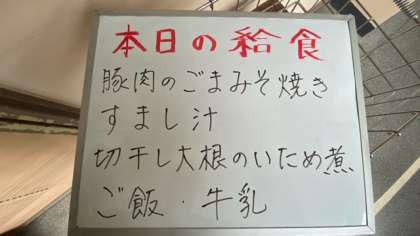 本日の給食
豚肉のごまみそ焼き
すまし汁
切干し大根のいため煮
ご飯・牛乳